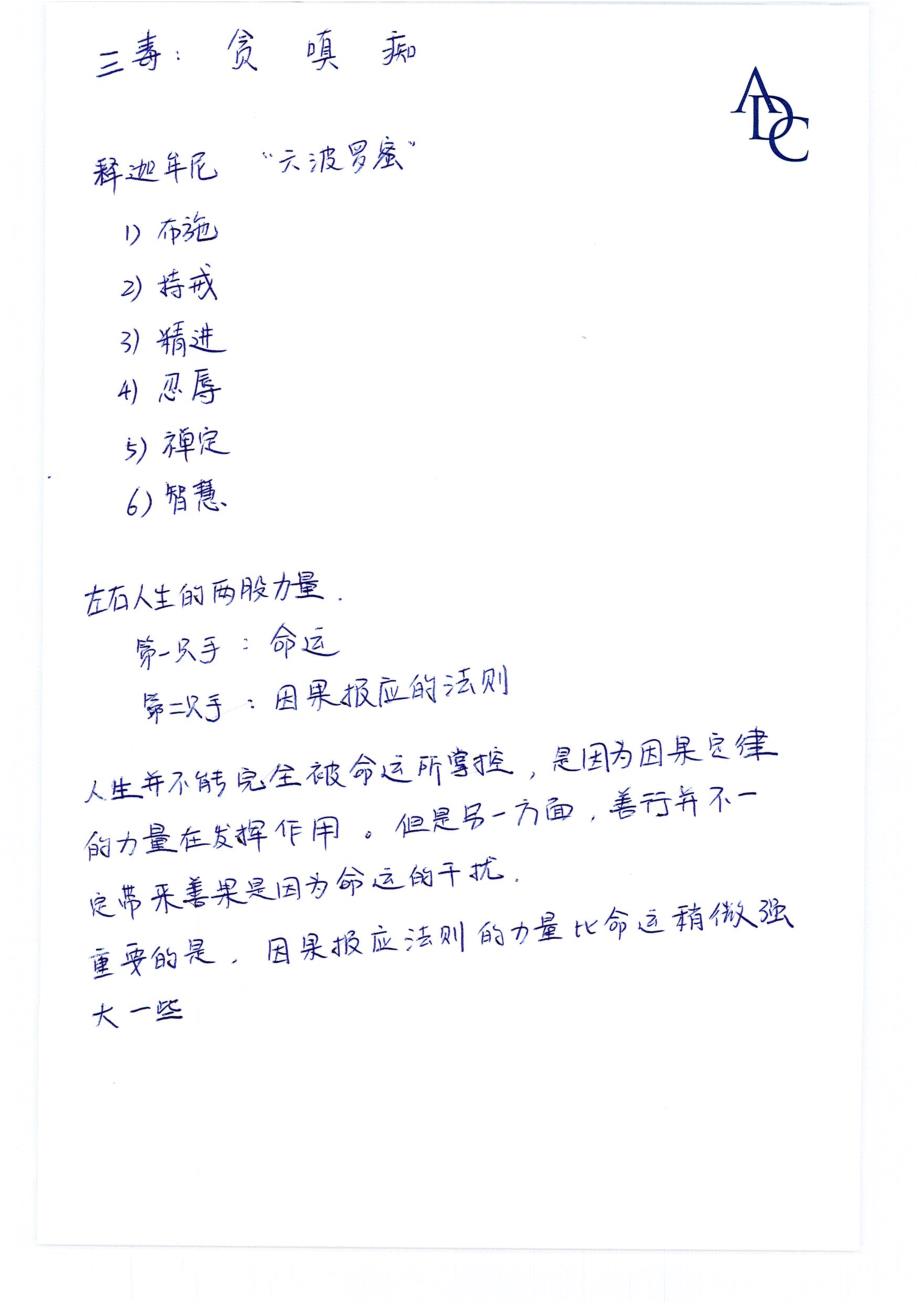 三毒： 贪 嗔 痴
ADC
释迦牟尼 “六波罗蜜”
1) 布施
2) 持戒
3) 精进
4) 忍辱
5) 禅定
6) 智慧
左右人生的两股力量.
第一只手：命运
第二只手：因果报应的法则
人生并不能完全被命运所掌控，是因为因果定律
的力量在发挥作用。但是另一方面，善行并不一
定带来善果是因为命运的干扰.
重要的是，因果报应法则的力量比命运稍微强
大一些